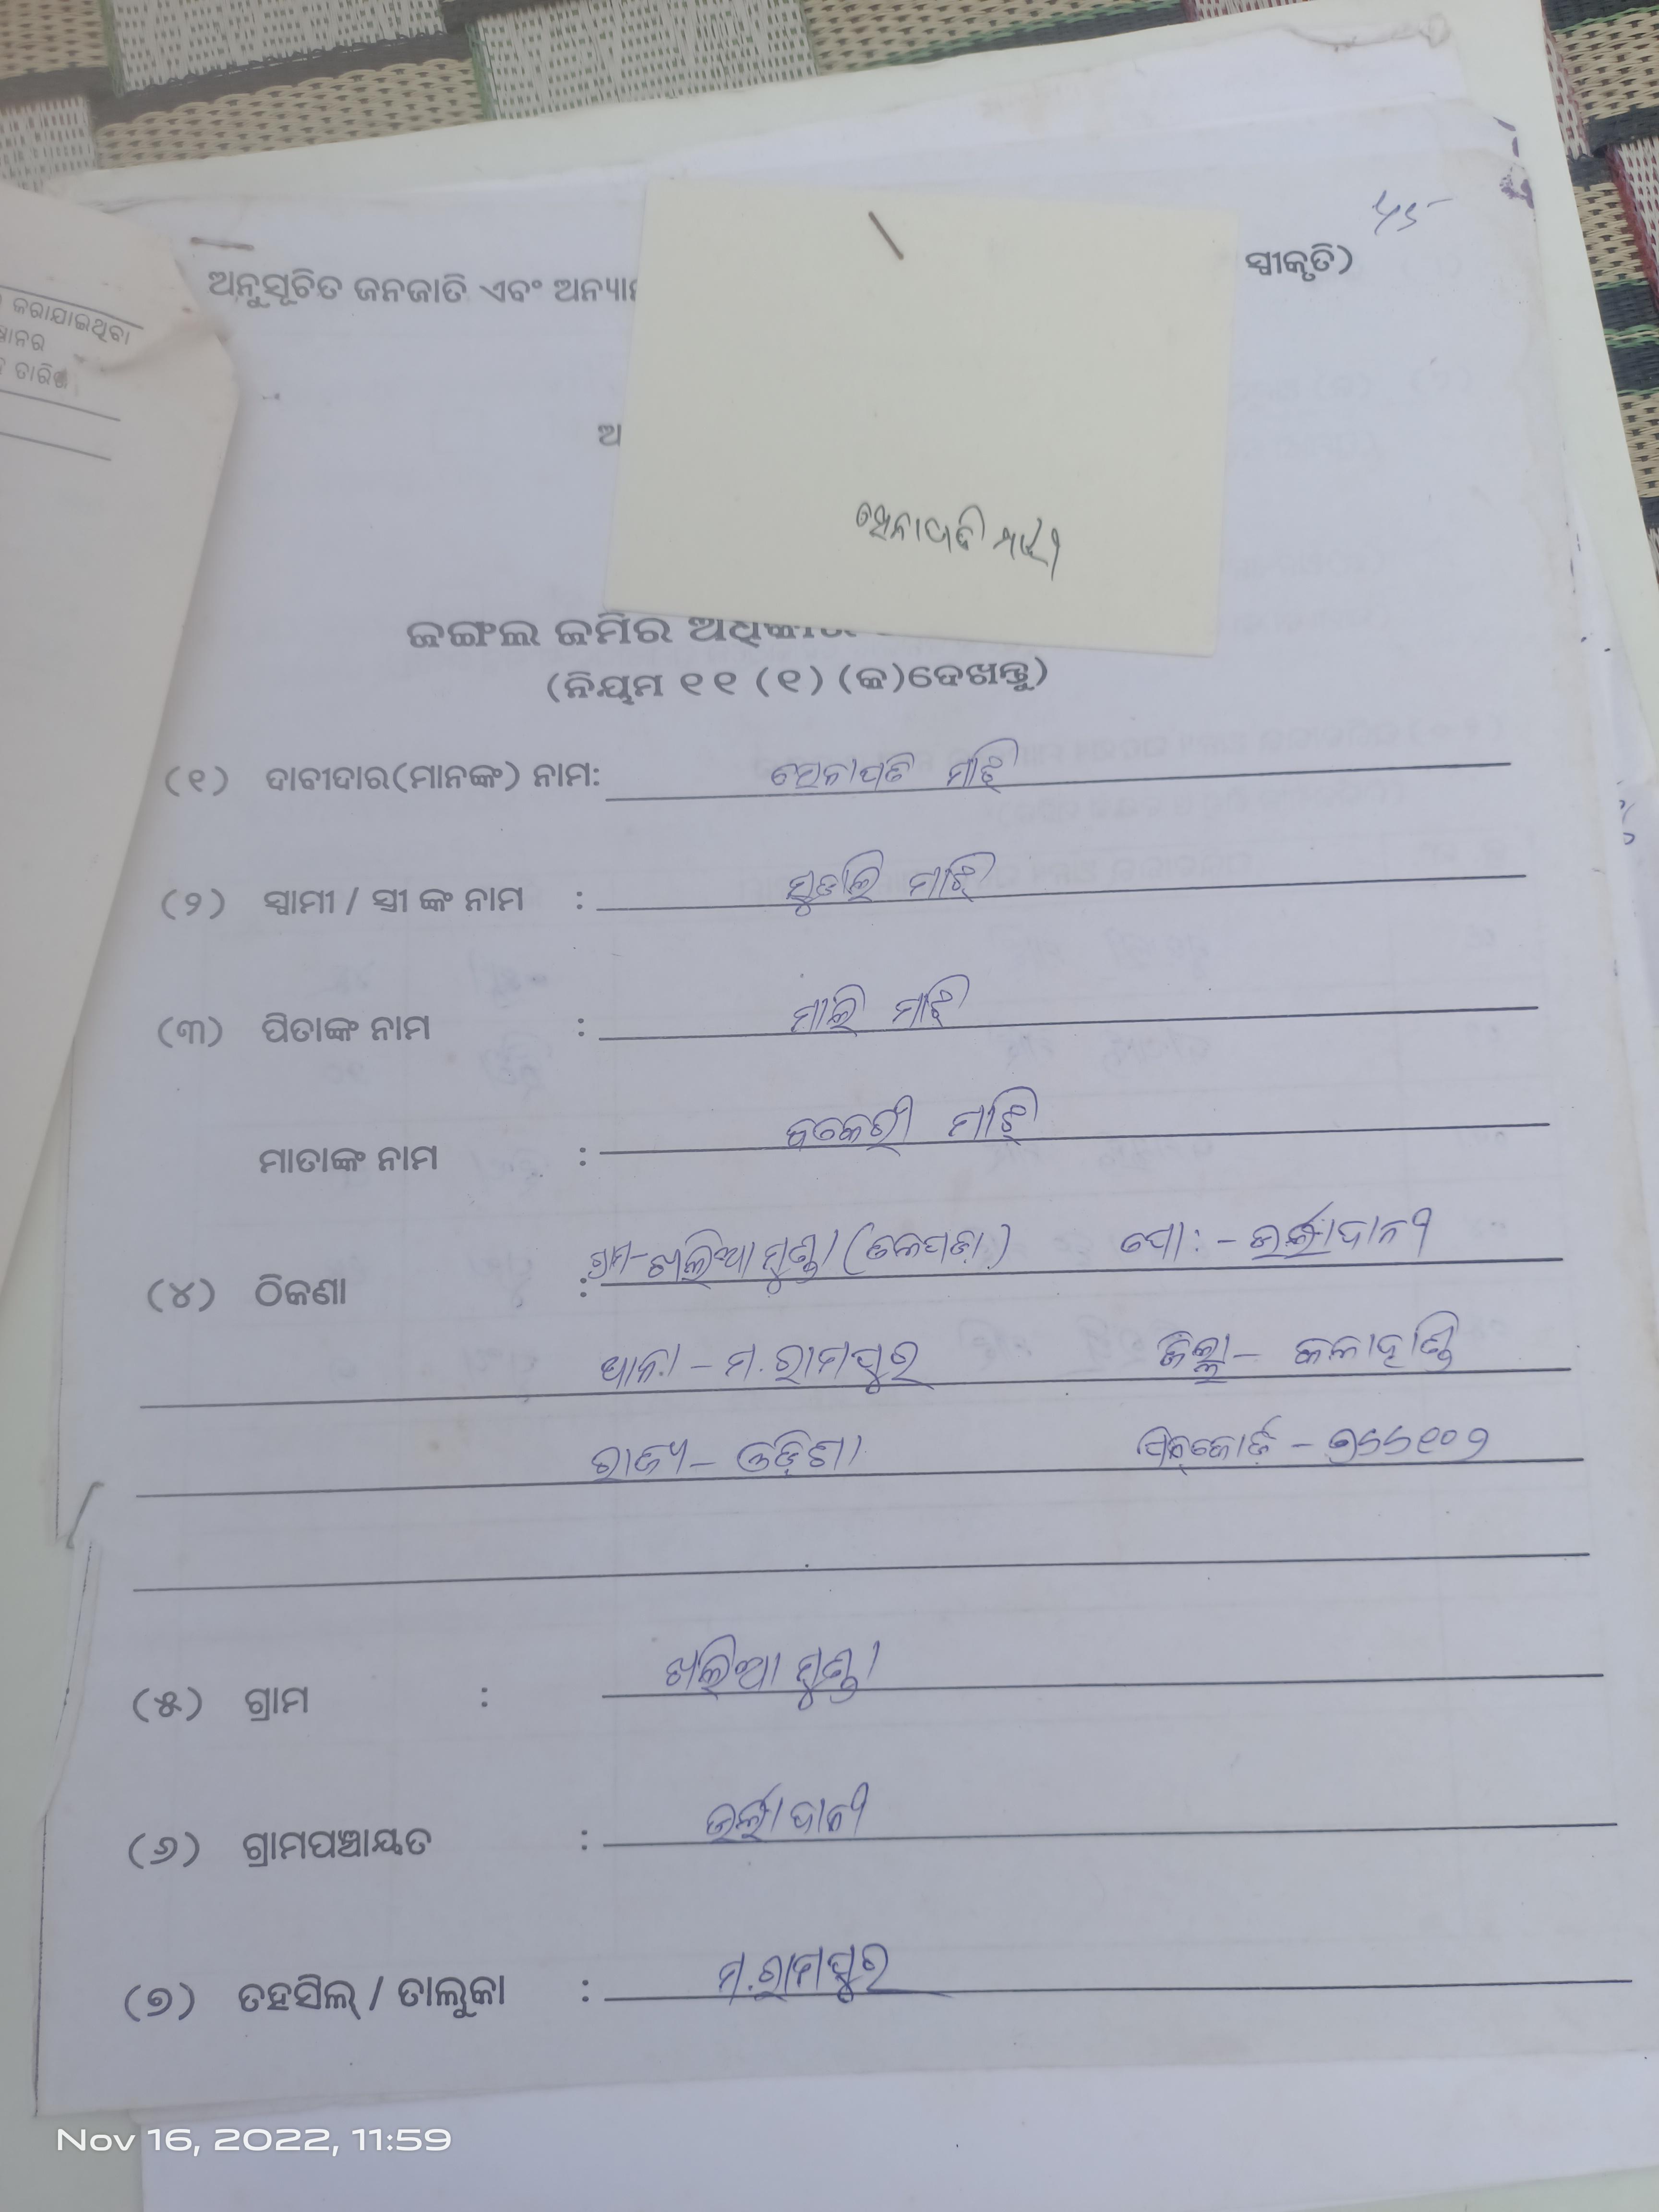 ୪୨
ଅନୁସୂଚିତ ଜନଜାତି ଏବଂ ଅନ୍ୟାନ ସ୍ୱୀକୃତି)
କରାଯାଇଥିବା
ତାରିଖ
ଅ
ସେନାପତି ମାଝୀ
ଜଙ୍ଗଲ ଜମିର ଅଧିକାର
(ନିୟମ ୧୧ (୧) (କ)ଦେଖନ୍ତୁ)
(୧) ଦାବୀଦାର(ମାନଙ୍କ) ନାମ: ସେନାପତି ମାଝି
(୨) ସ୍ୱାମୀ / ସ୍ତ୍ରୀ ଙ୍କ ନାମ : ସୁତାଲି ମାଝି
(୩) ପିତାଙ୍କ ନାମ : ମାଲି ମାଝି
ମାତାଙ୍କ ନାମ : ମାଝି
(୪) ଠିକଣା : ଗ୍ରାମ-ଖଲିଆମୁଣ୍ଡା (ତଳପଡ଼ା) ପୋ: -
ଥାନା - ମ.ରାମପୁର ଜିଲ୍ଲା - କଳାହାଣ୍ଡି
ରାଜ୍ୟ - ଓଡ଼ିଶା ପିନ୍‌କୋଡ଼ - ୭୬୬୧୦୨
(୫) ଗ୍ରାମ : ଖଲିଆମୁଣ୍ଡା
(୬) ଗ୍ରାମପଞ୍ଚାୟତ :
(୭) ତହସିଲ୍ / ତାଲୁକା : ମ.ରାମପୁର
Nov 16, 2022, 11:59